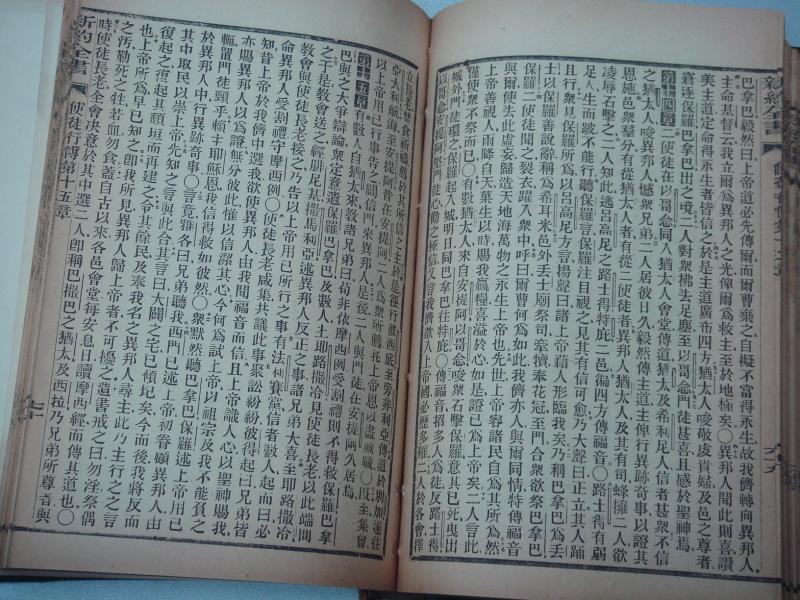 巴拿巴毅然曰上帝道必先傳爾而爾曹棄之自擬不當得永生故我儕轉向異邦人
主命基督云我立爾爲異邦人之光俾爾爲救主至於地極矣〇異邦人聞此則喜讚
美主道定命得永生者皆信之於是主道廣布四方猶太人唆敬虔貴婦及邑之尊者
窘逐保羅巴拿巴出之境二人對衆拂去足塵至以哥念門徒甚喜且感於聖神焉
第十四章二使徒在以哥念同入猶太人會堂傳道猶太及希利尼人信者甚衆不信
之猶太人唆異邦人憾衆兄弟二人居彼日久毅然傳主道主俾行異跡奇事以證其
恩施邑衆羣分有從猶太人者有從二使徒者異邦人猶太人及其有司蜂擁二人欲
凌辱石擊之二人知此逃呂高尼之路士得特庇二邑徧四方傳福音〇路士得有弱
生而跛不能行聽保羅言保羅注目視之見其有信可愈乃大聲曰正立其人踊
且行衆見保羅所爲以呂高尼方言揚聲曰諸上帝藉人形臨我矣乃稱巴拿巴爲丟
士保羅善說辭稱爲希耳米邑外丟士廟祭司牽犢奉花冠至門合衆欲祭拿巴
保羅二使徒聞之裂衣躍入衆中呼曰爾曹何爲如此我儕亦人與爾同情特傳福音
與爾使去此虛妄歸造天地海萬物之永生上帝也先世上帝容諸民自爲其所爲然
上帝善視人雨降自天菓生以時賜我糧喜溢於心如是證已爲上帝矣二人言此
衆不祭而已〇有數猶太人來自安提阿以哥念唆衆石擊保羅意其已死曳出
城外門徒環之保羅起入城明日同巴拿巴往特庇〇傳福音招多人爲徒反路士得
以哥念安提阿堅門徒心勸之極信又言我儕欲入上帝國必歷多艱二人於各會擇
立長老禁食祈禱賴於其所信之主於是徑行彼西底至旁非利亞傳道於別加遂往
亞大利航海至安提阿昔在安提阿二人爲衆所薦托上帝恩以盡厥職〇既至集會
以上帝用已行事告之闢信門來異邦人是後二人與門徒在安提阿久居焉
第十五章有數人自猶太來教諸兄弟曰苟非依摩西例受割禮則不得救保羅巴拿
巴與之大爭辯論衆定意遣保羅巴拿巴及數人上耶路撒冷見使徒長老以此端問
之于是教會送之經腓尼基撒馬利亞述異邦人反正之事諸兄弟大喜至耶路撒冷
教會與使徒長老接之乃告以上帝用已所行之事有法利賽黨信者數人起而曰必
命異邦人受割禮守摩西例〇使徒長老咸集共議此事聚訟紛紛彼得起曰兄弟皆
知昔上帝於我儕中選我欲使異邦人由我聞福音而信且上帝識人心以聖神賜我
亦賜異邦人爲證無分彼此惟以信潔其心今何爲試上帝以祖宗及我不能負之
軛置門徒頸乎賴主耶穌恩我信得救如彼然〇衆默然聽巴拿巴保羅述上帝用己
於異邦人中行異跡奇事〇言竟雅各曰兄弟聽我西門已述上帝初眷顧異邦人由
其中取民以崇上帝先知之言與此合其言曰大闢之宅已傾圮矣今而後我將反而
復起之復起其頹垣而再建之令其餘民及奉我名之異邦人尋主此乃主行之之言
也上帝所爲早已知之卽我所見異邦人歸上帝者不可擾之遺書戒之曰勿淫祭偶
之汚勒死之牲若血勿食蓋自古以來各邑會堂每安息日讀摩西經而傳其道也〇
時使徒長老全會決意於其中選二人卽稱巴撒巴之猶太及西拉乃兄弟所尊音與
新約全書 使徒行傳第十五章 七十